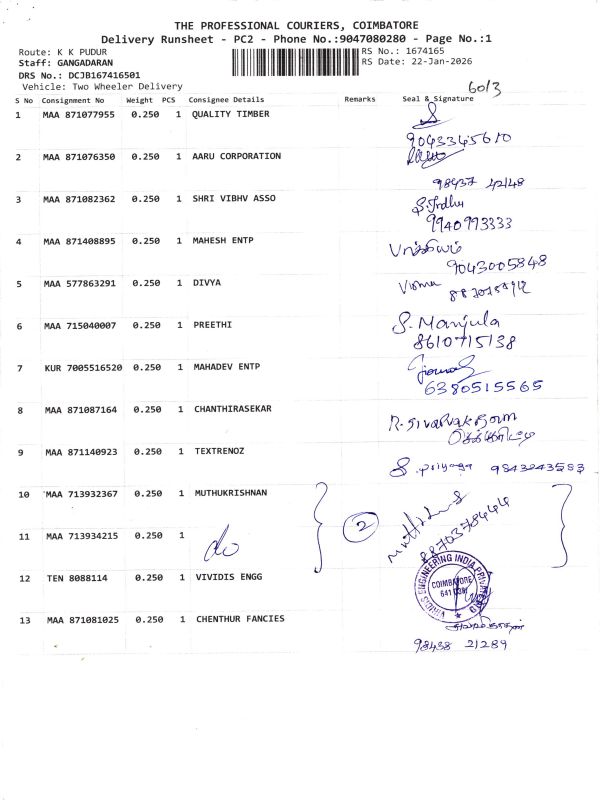 THE PROFESSIONAL COURIERS, COIMBATORE
Delivery Runsheet - PC2 - Phone No.:9047080280 - Page No.:1
Route: K K PUDUR RS No.: 1674165
Staff: GANGADARAN RS Date: 22-Jan-2026
DRS No.: DCJB167416501
Vehicle: Two Wheeler Delivery 60/3
S No Consignment No Weight PCS Consignee Details Remarks Seal & Signature
1 MAA 871077955 0.250 1 QUALITY TIMBER
9043345670
2 MAA 871076350 0.250 1 AARU CORPORATION
98437 42148
3 MAA 871082362 0.250 1 SHRI VIBHV ASSO
9940793333
4 MAA 871408895 0.250 1 MAHESH ENTP
9043005848
5 MAA 577863291 0.250 1 DIVYA
6 MAA 715040007 0.250 1 PREETHI S. Manjula
8610715138
7 KUR 7005516520 0.250 1 MAHADEV ENTP
6380515565
8 MAA 871087164 0.250 1 CHANTHIRASEKAR
9 MAA 871140923 0.250 1 TEXTRENOZ
S. priyaga 9843243583
10 MAA 713932367 0.250 1 MUTHUKRISHNAN
2
8870378444
11 MAA 713934215 0.250 1 do
12 TEN 8088114 0.250 1 VIVIDIS ENGG
VIVIDIS ENGINEERING INDIA PRIVATE
COIMBATORE
641 038
13 MAA 871081025 0.250 1 CHENTHUR FANCIES
98438 21289